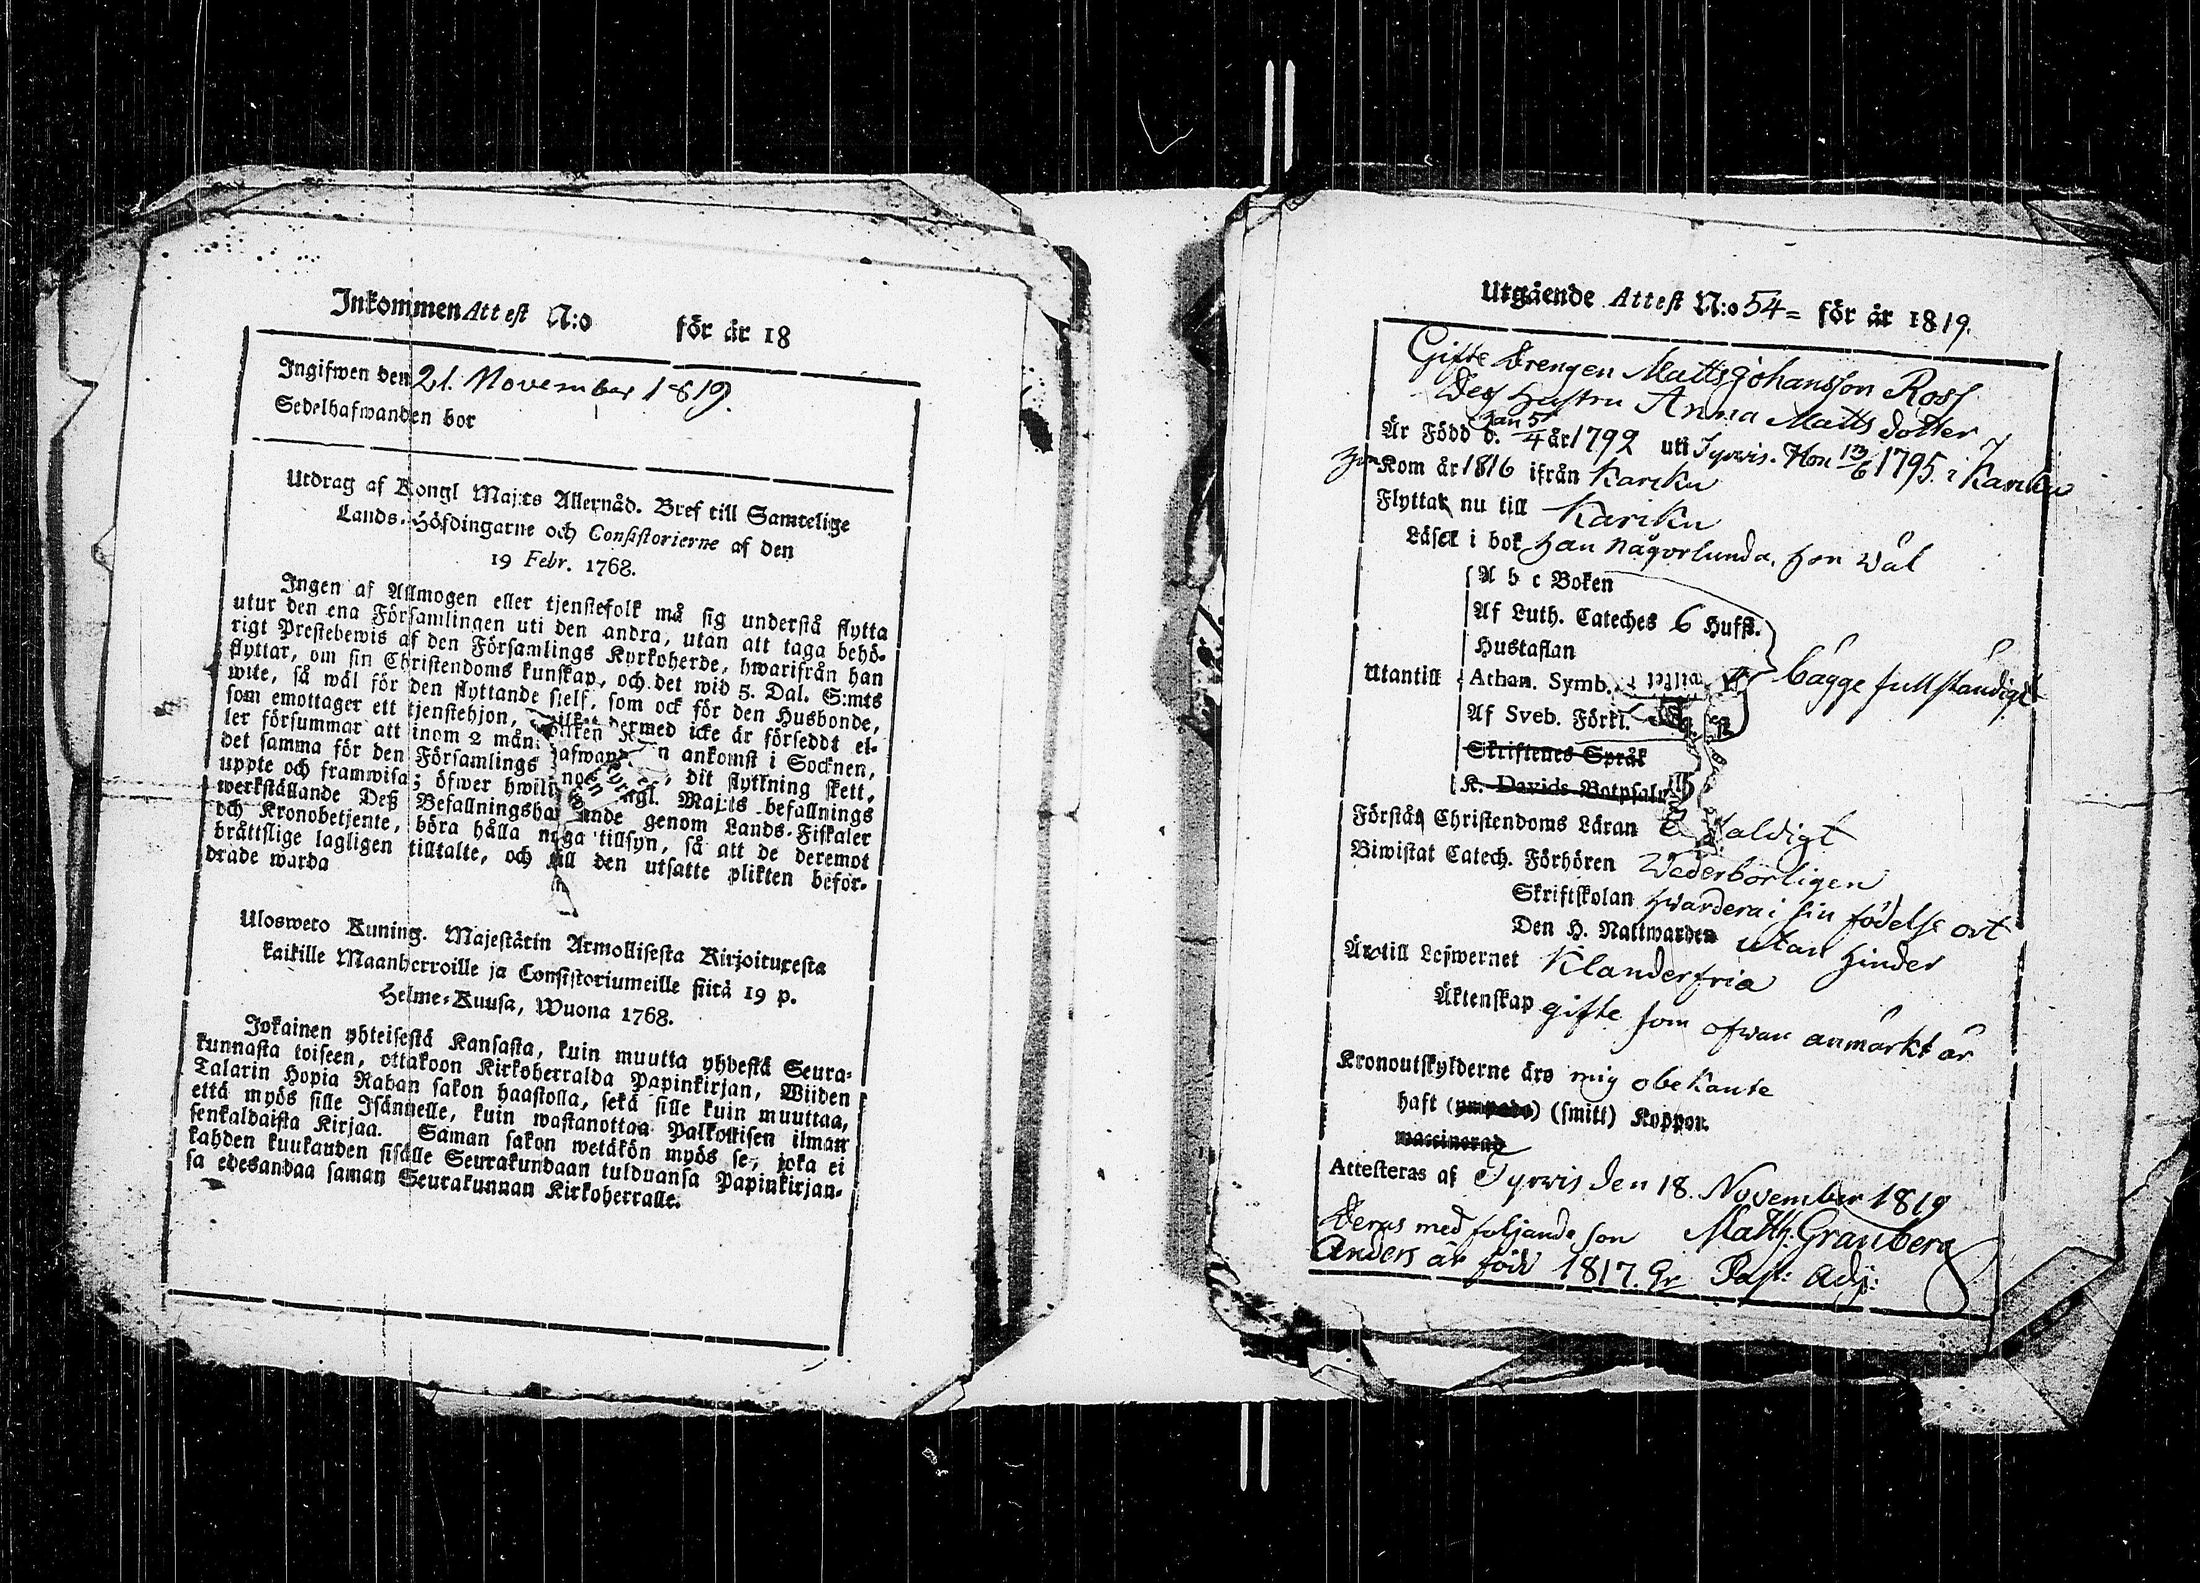 Inkommen Attest N:o för år 18
Ingifwen den 21. November 1819.
Sedelhafwanden bor
Utdrag af Kongl Maj:ts Allernåd. Bref till Samtelige
Lands-Höfdingarne och Consistorierne af den
19 Febr. 1768.
Ingen af Allmogen eller tjenstefolk må sig understå flytta
utur den ena Församlingen uti den andra, utan att taga behö-
rigt Prestebewis af den Församlings Kyrkoherde, hwarifrån han
flyttar, om sin Christendoms kunskap, och det wid 5. Dal. S:mts
wite, så wäl för den flyttande sielf, som ock för den Husbonde,
som emottager ett tjenstehjon, hwilket dermed icke är försedt el-
ler försummar att inom 2 mån: ankomst i Socknen,
det samma för den Församlings dit flyttning skett,
uppte och framwisa; öfwer hwilken Kongl. Maj:ts befallnings
werkställande Deß Befallningshafwande genom Lands-Fiskaler
och Kronobetjente, böra hålla noga tillsyn, så att de deremot
bråttslige lagligen tilltalte, och till den utsatte plikten befor-
drade warda
Uloswero Kuning. Majestätin Armollisesta Kirjoituxesta
kaikille Maanherroille ja Consistoriumeille siitä 19 p.
Helme-Kuusa, Wuona 1768.
Jokainen yhteisestä Kansasta, kuin muutta yhdestä Seura-
kunnasta toiseen, ottakoon Kirkoherralda Papinkirjan, Wiiden
Talarin Hopia Rahan sakon haastolla, sekä sille kuin muuttaa,
että myös sille Isännelle, kuin wastanottaa Palkollisen ilman
senkaldaista Kirjaa. Saman sakon wetäkön myös se, joka ei
kahden kuukauden sisälle Seurakundaan tulduansa Papinkirjan-
sa edesandaa saman Seurakunnan Kirkoherralle.
Utgående Attest N:o 54 = för år 1819.
Gifte Drengen Matts Johansson Ross
Des Hustru Anna Matts dotter
Är Född d. han 5/4 år 1792 uti Tyrvis. Hon 13/6 1795. i Karku
Kom år 1816 ifrån Karku
Flyttar nu till Karku
Läser i bok han någorlunda, hon väl
A b c Boken
Af Luth. Cateches 6 Hufst.
Hustaflan
Utantill Athan. Symb. bägge fullständigt
Af Sveb. Förkl.
Skriftenes Språk
K. Davids Botpsalm
Förstår Christendoms Läran
Biwistat Catech. Förhören Wederborligen
Skriftskolan hvardera i sin födelse ort
Den H. Nattwarden utan hinder
Äro till Lefwernet Klanderfria
Äktenskap gifte som ofwan anmärkt är
Kronoutskylderne äro mig obekante
haft (ympade) (smitt) Koppor.
waccinerad
Attesteras af Tyrvis den 18. November 1819
Deras med foljande son Matth: Granberg
Anders är född 1817. Past: Adj: